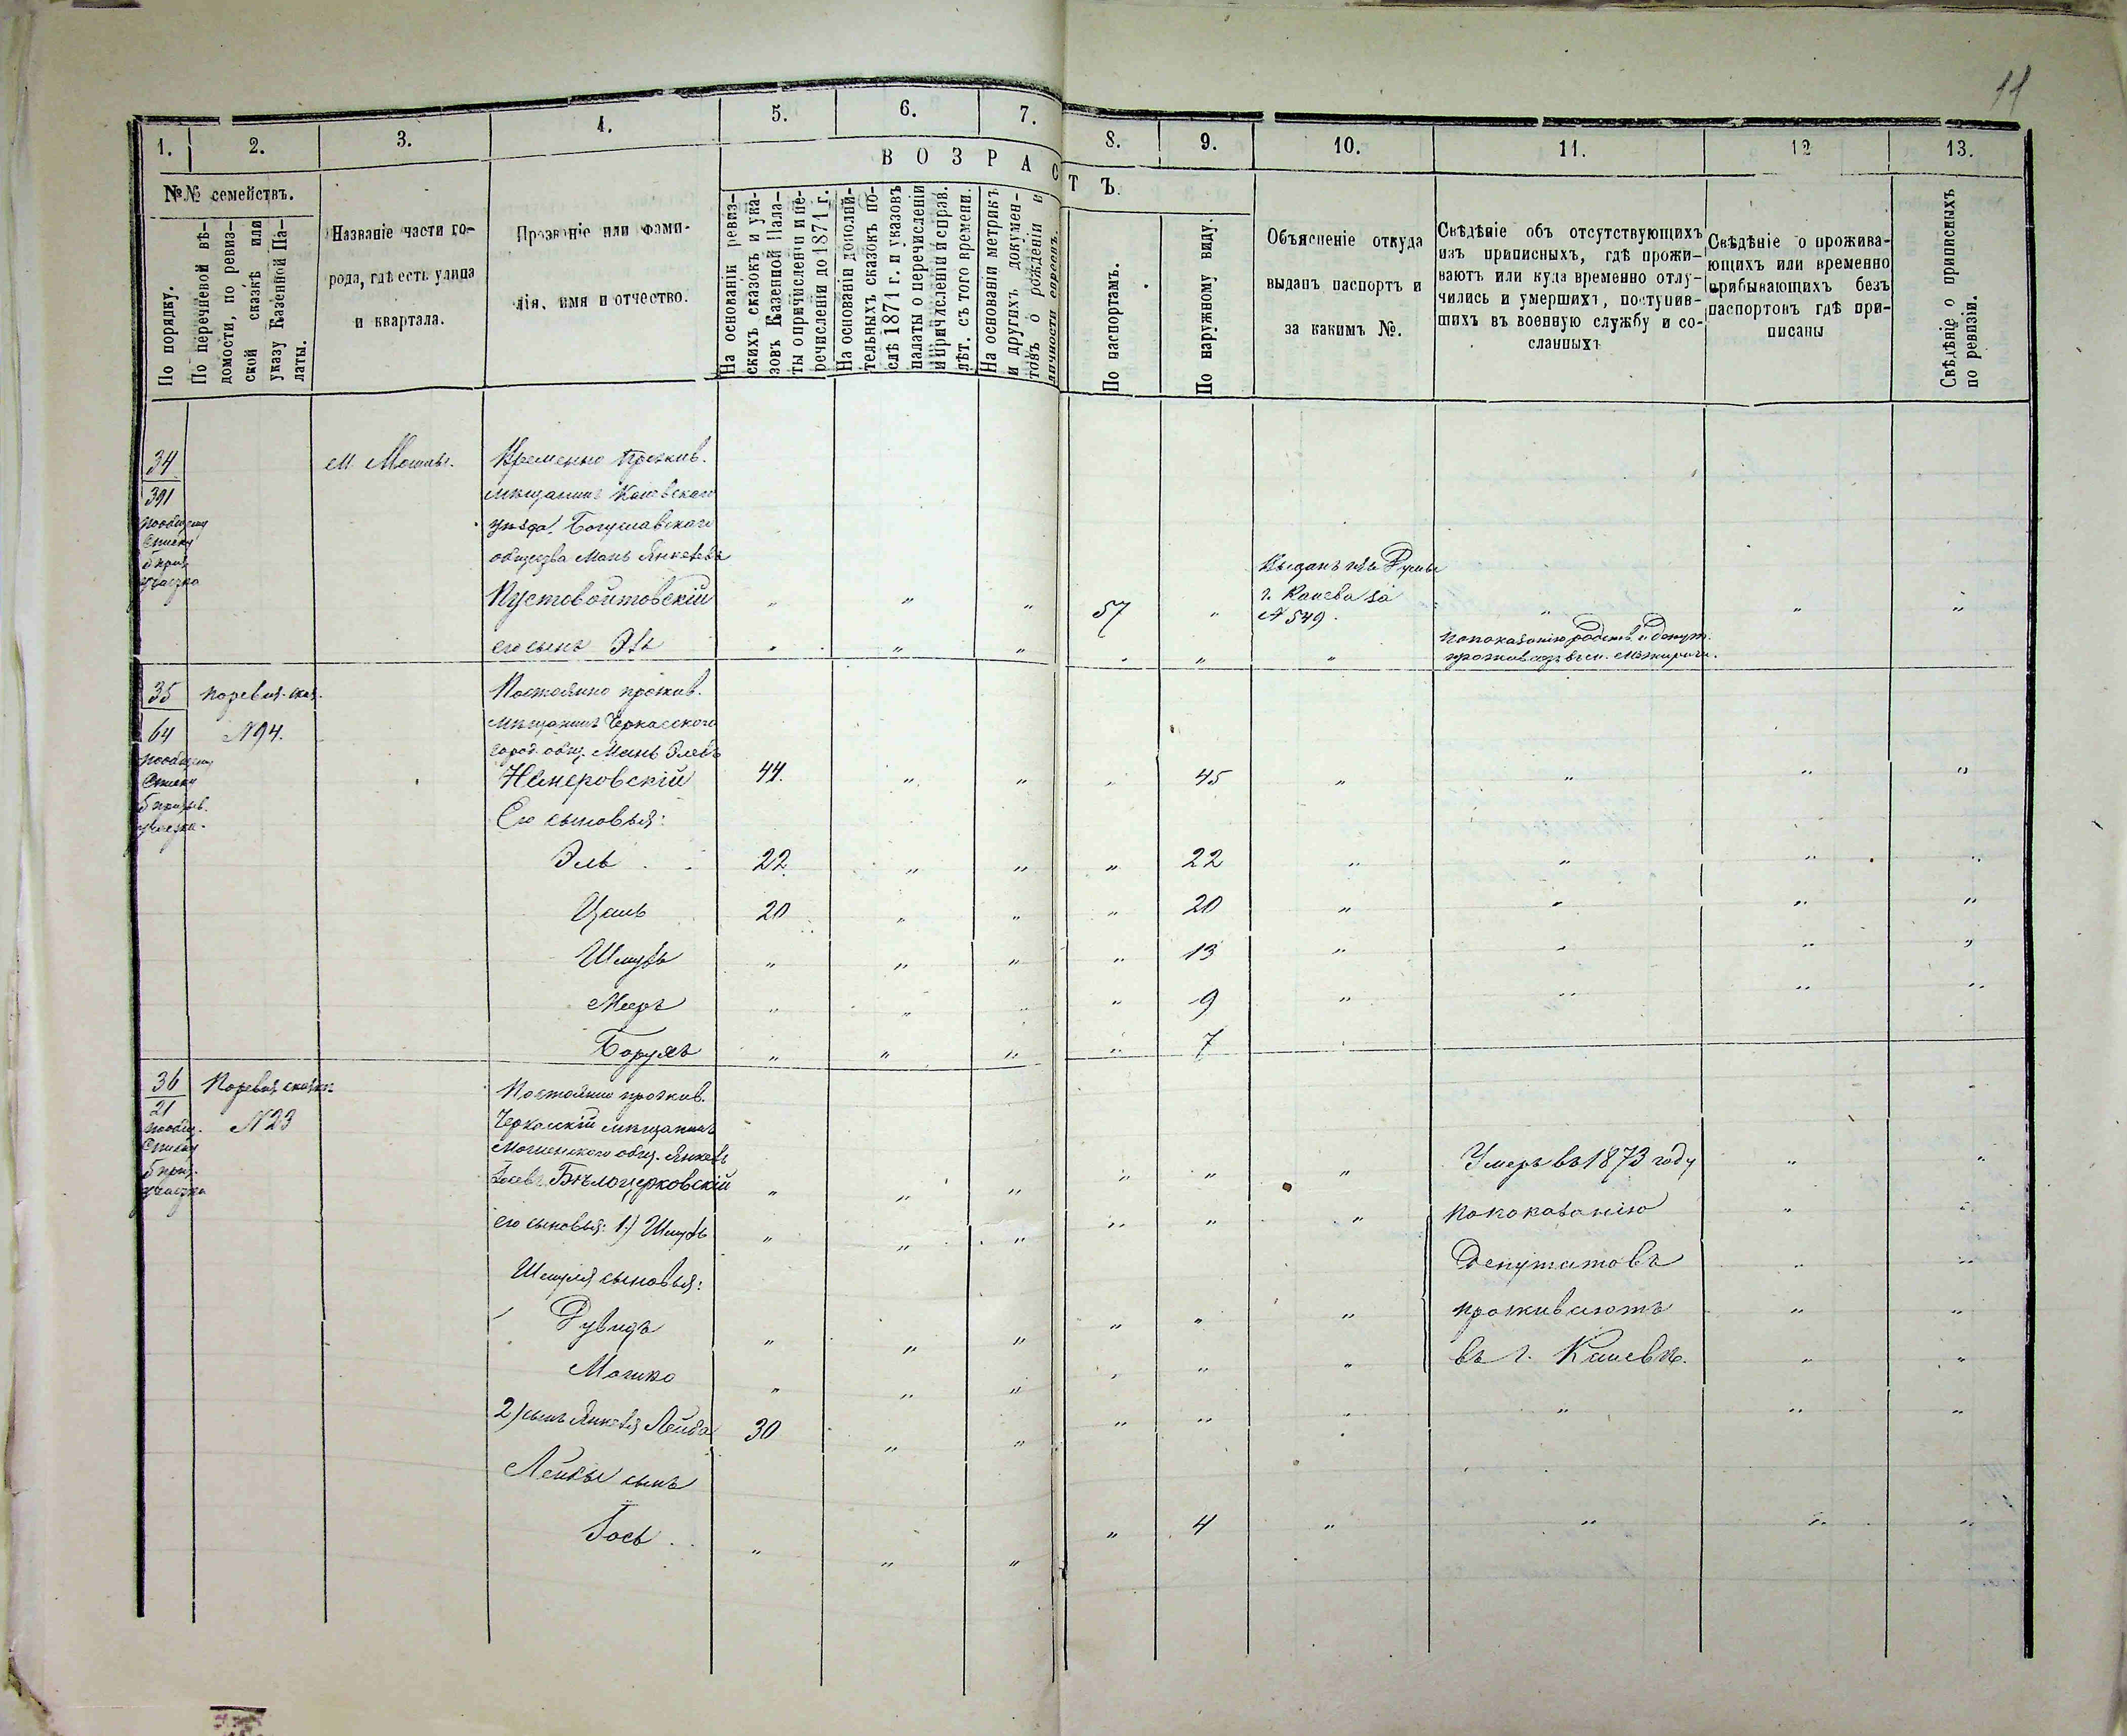 11
1.
2.
3.
4.
5.
6.
7.
8.
9.
10.
11.
12
13.
№№ семействъ.
ВОЗРАСТЪ.
По порядку.
По перечневой вѣ-
домости, по ревиз-
ской сказкѣ или
указу Казенной Па-
латы.
Названіе части го-
рода, гдѣ есть улица
и квартала.
Прозваніе или фами-
лія, имя и отчество.
На основаніи ревиз-
скихъ сказокъ и ука-
зовъ Казенной Пала-
ты о причисленіи и пе-
речисленіи до 1871 г.
На основаніи дополни-
тельныхъ сказокъ по-
слѣ 1871 г. и указовъ
палаты о перечисленіи
и причисленіи и справ.
лѣт. съ того времени.
На основаніи метрикъ
и другихъ докумен-
товъ о рожденіи и
личности евреевъ.
По паспортамъ.
По наружному виду.
Объясненіе откуда
выданъ паспортъ и
за какимъ №.
Свѣдѣніе объ отсутствующихъ
изъ приписныхъ, гдѣ прожи-
ваютъ или куда временно отлу-
чились и умершихъ, поступив-
шихъ въ военную службу и со-
сланныхъ
Свѣдѣніе о прожива-
ющихъ или временно
прибывающихъ безъ
паспортовъ гдѣ при-
писаны
Свѣдѣніе о приписныхъ
по ревизіи.
34
391
по общему
списку
5 приз.
участка
м Мошны.
Временно прожив.
мѣщанинъ Каневскаго
уѣзда Богуславскаго
общества Мань Янкелевъ
Пустовойтовскій " " " 57 "
Выданъ изъ Думы
г. Канева за
№ 549. " " "
его сынъ Эль " " " " " "
по показанію и депут.
прожив. въ м. Межиричи.
35
64
по общему
списку
5 призыв.
участка.
по ревиз. сказ.
№ 94.
Постоянно прожив.
мѣщанинъ Черкасскаго
город. общ. Мань Элевъ
44. " " " 45 " " " "
Его сыновья:
Эль 22. " " " 22 " " " "
20 " " " 20 " " " "
Шмуль " " " " 13 " " " "
Меръ " " " " 9 " " " "
Борухъ " " " " 7
36
21
по общ.
списку
5 приз.
участка
По ревиз. сказкѣ
№ 23
Постоянно прожив.
Черкасскій мѣщанинъ
Мошенскаго общ. Янкель
Іосевъ Бѣлоцерковскій " " " " " " Умеръ въ 1873 году " "
его сыновья: 1) Шмуль " " " " " " По показанію " "
Шмуля сыновья: Депутатовъ " "
Дувидъ " " " " " " проживаютъ " "
Мошко " " " " " " въ г. Каневѣ. " "
2) сынъ Янкеля Лейба 30 " " " " " " " "
Лейбы сынъ
Іось " " " " 4 " " " "